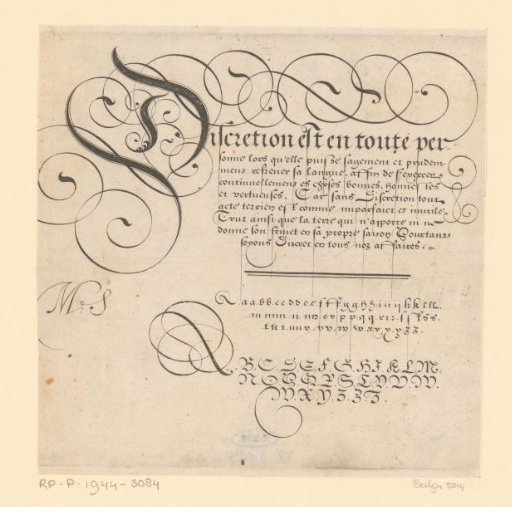 Discretion est en toute per-
sonne lors qu'elle puis se sagement et prudem-
ment refrener sa langue, affin de s'exercer
continuellement es choses bonnes, honnestes
et vertueuses. Car sans Discretion tout
acte terrien est comme imparfaict et inutile.
Tout ainsi que la terre qui n'apporte ni
donne son en sa propre saison Pourtant
soyons Discret en tous noz affaires.
MS
A a a b b c c d d e e f f f g g h h i i ij k k l l l
m m m . n nn o v p p q q r r r . s s ß s s.
t t t . u u v . v v . w w x x y . y z z z .
A B C D E F G H I K L M.
N O P Q R S T V V V W.
W X Y Z Z Z .
RP-P-1944-3084